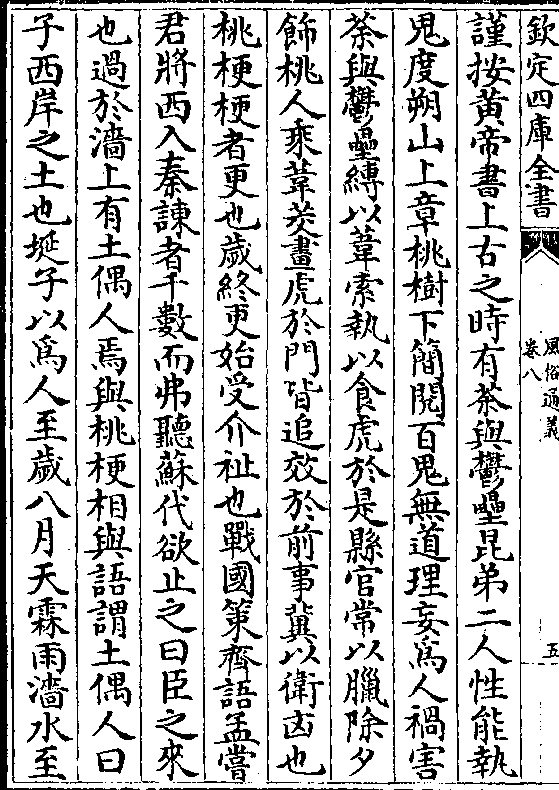 欽定四庫全書
風俗通義
卷八
五
謹按黄帝書上古之時有荼與鬱壘昆弟二人性能執
鬼度朔山上章桃樹下簡閱百鬼無道理妄為人禍害
荼與鬱壘縛以葦索執以食虎於是縣官常以臘除夕
飾桃人乘葦茭畫虎於門皆追效於前事冀以衛凶也
桃梗梗者更也歲終更始受介祉也戰國策齊語孟嘗
君將西入秦諫者千數而弗聽蘇代欲止之曰臣之來
也過於淄上有土偶人焉與桃梗相與語謂土偶人曰
子西岸之土也埏子以為人至歲八月天霖雨淄水至